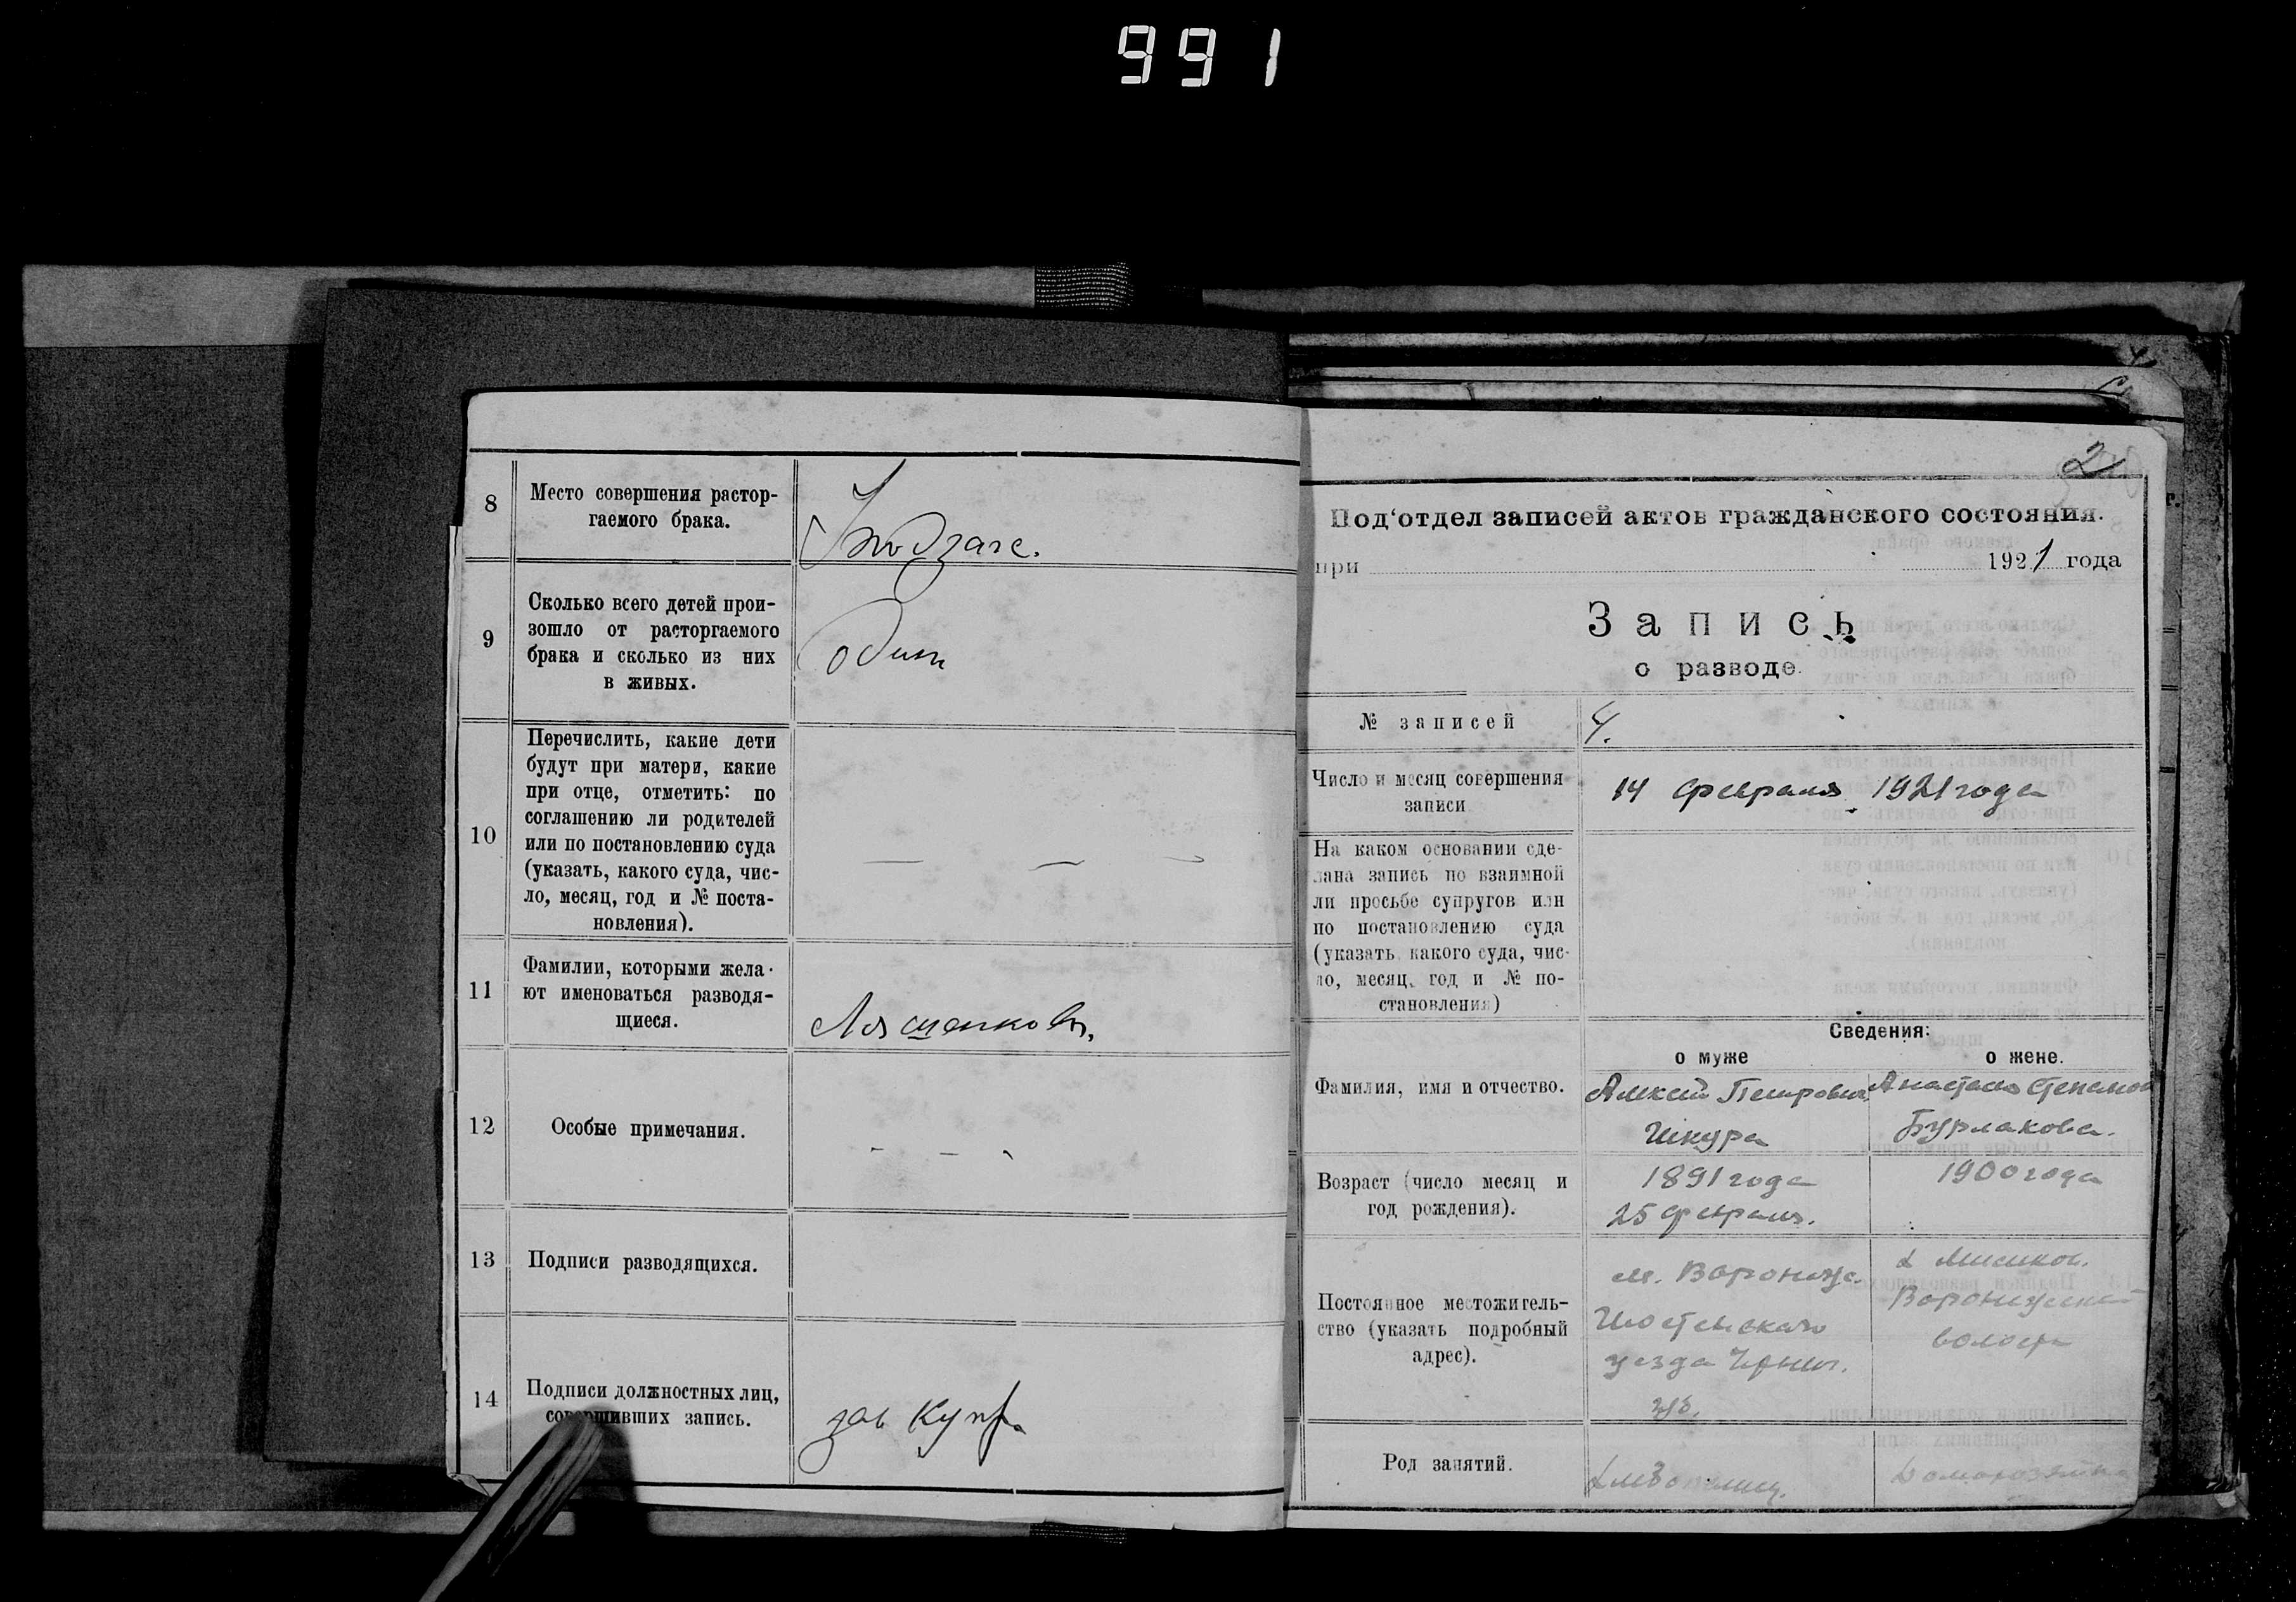 991
8
Место совершения растор-
гаемого брака.
9
Сколько всего детей прои-
зошло от расторгаемого
брака и сколько из них
в живых.
один
10
Перечислить, какие дети
будут при матери, какие
при отце, отметить: по
соглашению ли родителей
или по постановлению суда
(указать, какого суда, чис-
ло, месяц, год и № поста-
новления).
— — —
11
Фамилии, которыми жела-
ют именоваться разводя-
щиеся.
Лященковы,
12
Особые примечания.
- - -
13
Подписи разводящихся.
14
Подписи должностных лиц,
совершивших запись.
зав Купр.
2
Под‘отдел записей актов гражданского состояния.
при 1921 года
Запись
о разводе.
№ записей
4.
Число и месяц совершения
записи
14 февраля 1921 года
На каком основании сде-
лана запись по взаимной
ли просьбе супругов или
по постановлению суда
(указать какого суда, чис-
ло, месяц, год и № по-
становления)
Сведения:
о муже о жене.
Фамилия, имя и отчество.
Алексей Петрович
Шкура
Анастасия Степанов
Бурлакова.
Возраст (число месяц и
год рождения).
1891 года
25 февраля.
1900 года
Постоянное местожитель-
ство (указать подробный
адрес).
м. Воронеж.
Шостенскаго
уезда Черниг.
губ.
Воронежской
волости
Род занятий.
Хлебопашец.
Домохозяйка